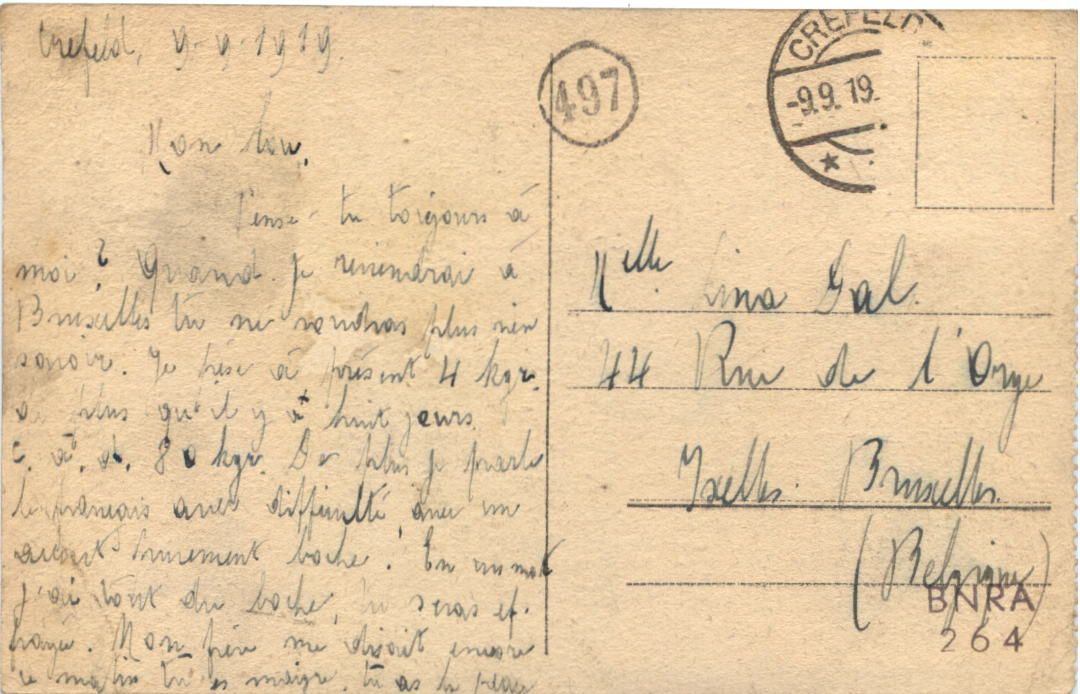 Crefeld, 9-9-1919.
Mon lou,
Pense-tu toujours à
moi? Quand je reviendrai à
Bruxelles tu ne voudras plus rien
savoir. Je pèse à présent 4 kgr.
de plus qu'il y a huit jours.
c. à. d. 80 kgr. De plus je parle
le français avec difficulté, avec un
accent purement boche! En un mot
j'ai tout du boche, tu seras ef-
frayée. Mon frère me disait encore
ce matin tu es maigre, tu as la peau
497
CREFELD
-9.9.19.
Melle Lina Gal.
44 Rue de l'Orge
Ixelles. Bruxelles.
(Belgique)
BNRA
264